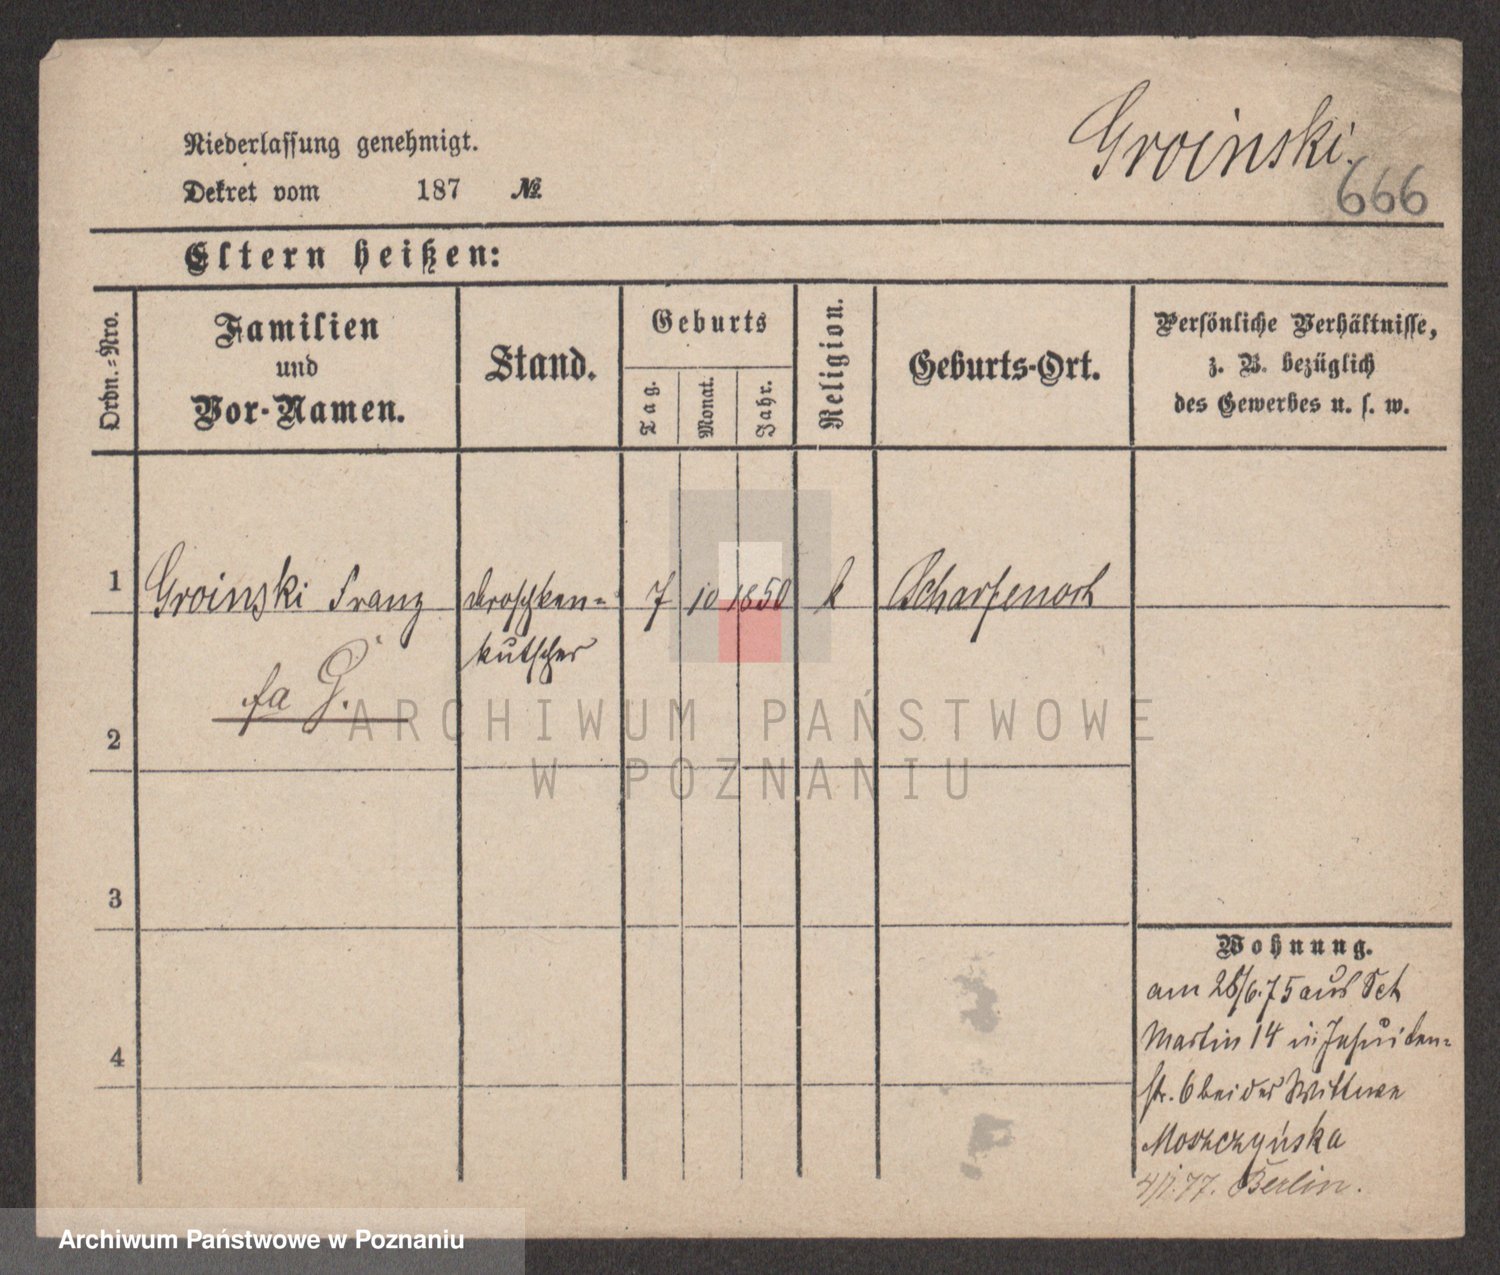 Groinski.
666
Niederlassung genehmigt.
Dekret vom 187 №
Eltern heißen:
Ordn.=Nro.
Familien
und
Vor-Namen.
Stand.
Geburts
Tag.
Monat.
Jahr.
Religion.
Geburts-Ort.
Persönliche Verhältnisse,
z. B. bezüglich
des Gewerbes u. s. w.
1 Groinski Franz Droschken= 7 10 1850 k Scharfenort
kutscher
fa G.
2
3
4
Wohnung.
am 28/6.75 aus Sct
Martin 14 in Jesuiten=
str. 6 bei der Wittwe
Moszczyńska
4/1.77. Berlin.
ARCHIWUM PAŃSTWOWE
W POZNANIU
Archiwum Państwowe w Poznaniu